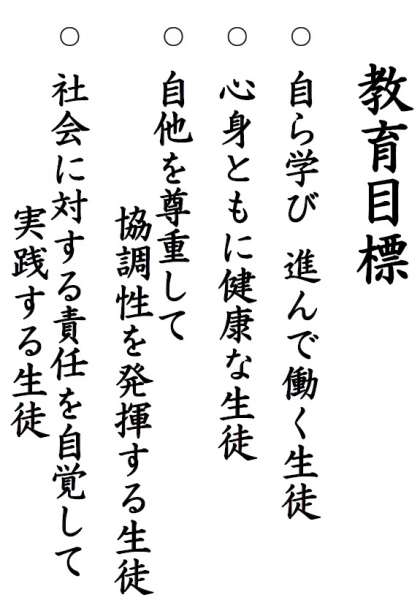 教育目標
○ 自ら学び 進んで働く生徒
○ 心身ともに健康な生徒
○ 自他を尊重して
協調性を発揮する生徒
○ 社会に対する責任を自覚して
実践する生徒